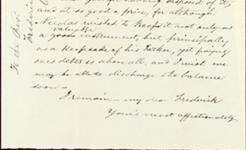 and at so good a price, for although
Nicolas wished to keep it not only as
valuable
a good instrument, but principally
as a Keepsake of his Father, yet paying
ones debts is above all, and I wish we
may be able to discharge the balance
soon —
I remain — my dear Frederick
Yours most affectionately
To the Revd